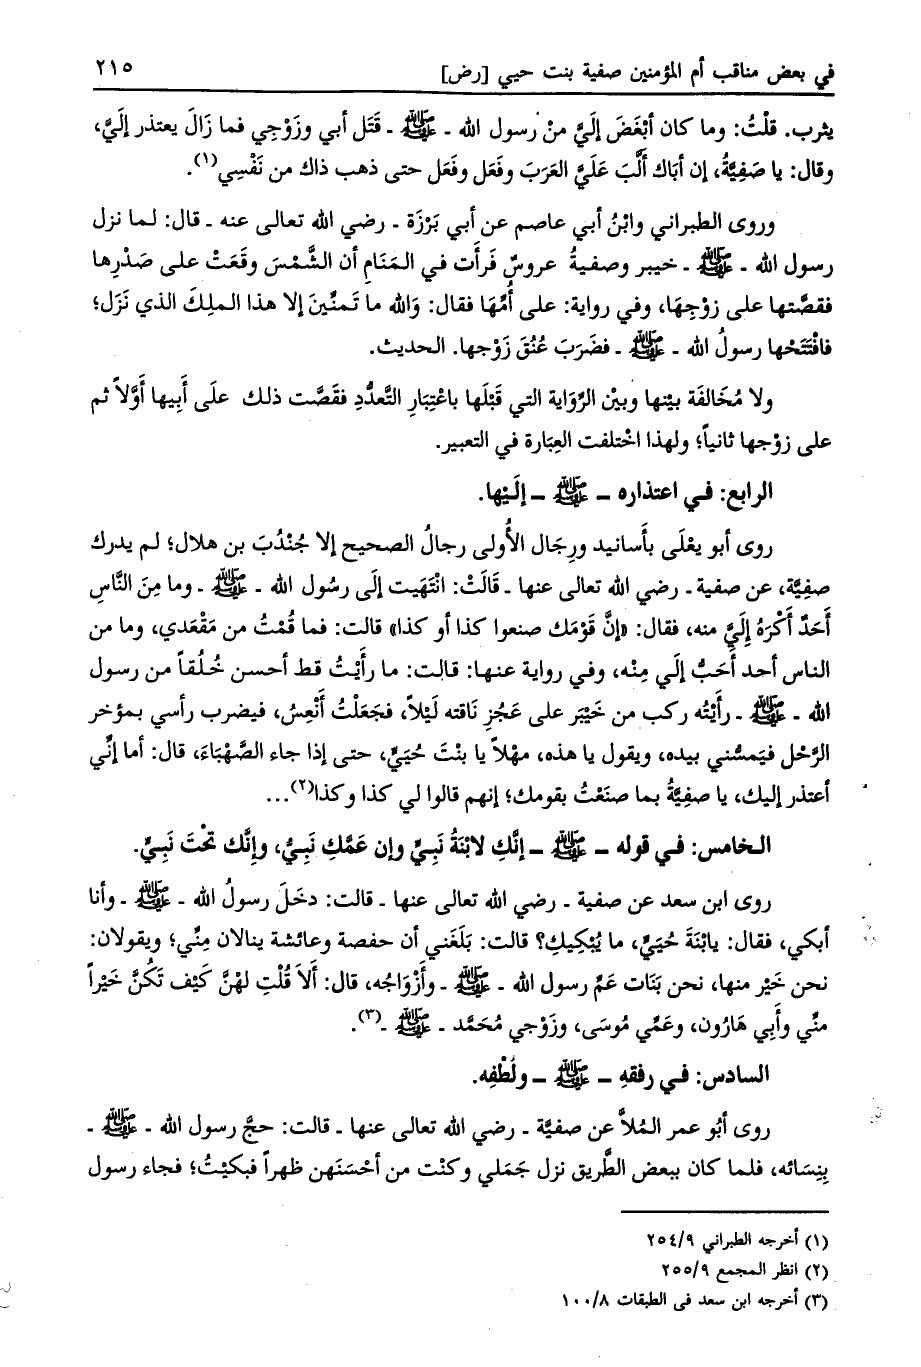 في بعض مناقب أم المؤمنين صفية بنت حيي [رض] ٢١٥
يثرب. قلْتُ: وما كان أبْغَضَ إليَّ منْ رسول الله ـ ﷺ ـ قَتَل أبي وزَوْجِي فما زَالَ يعتذر إليَّ،
وقال: يا صَفِيَّةُ، إن أبَاك أَلَّبَ عَلَيَّ العَرَبَ وفَعَل وفعَل حتى ذهب ذاك من نَفْسِي(١).
وروى الطبراني وابْنُ أبي عاصم عن أبي بَرْزَة ـ رضي الله تعالى عنه ـ قال: لما نزل
رسول الله ـ ﷺ ـ خيبر وصفيةُ عروسٌ فَرأَت في المَنَامِ أن الشَّمْسَ وقَعَتْ على صَدْرِها
فقصَّتها على زوْجِهَا، وفي رواية: على أُمِّهَا فقال: وَالله ما تَمنَّينَ إلا هذا الملِكَ الذي نَزَل؛
فافْتَتَحْها رسولُ الله ـ ﷺ ـ فضَرَبَ عُنُقَ زَوْجها. الحديث.
ولا مُخَالفَة بيْنها وبيْن الرِّوَاية التي قَبْلَها باعْتِبَارِ التَّعدُّدِ فقَصَّت ذلك علَى أَبِيها أَوَّلاً ثم
على زوْجها ثانياً؛ ولهذا اخْتلفت العِبَارة في التعبير.
الرابع: في اعتذاره ـ ﷺ ـ إلَيْها.
روى أبو يعْلَى بأَسانيد ورِجَال الأُولى رجالُ الصحيح إلا جُنْدُبَ بن هلال؛ لم يدرك
صفِيَّة، عن صفية ـ رضي الله تعالى عنها ـ قَالَتْ: انْتَهَيت إلَى رسُول الله ـ ﷺ ـ وما مِنَ النَّاسِ
أَحَدٌ أَكْرَهُ إلَيَّ منه، فقال: «إنَّ قَوْمَك صنعوا كذا أو كذا» قالت: فما قُمْتُ من مَقْعَدي، وما من
الناس أحد أَحَبُّ إلَي مِنْه، وفي رواية عنها: قالت: ما رأَيْتُ قط أحسن خُلُقاً من رسول
الله ـ ﷺ ـ رأَيْتُه ركب من خَيْبَر على عَجُزِ نَاقته لَيْلاً، فجَعَلْتُ أَنْعِسُ، فيضرب رأسي بمؤخر
الرَّحْل فيَمسُّني بيده، ويقول يا هذه، مهْلاً يا بنْتَ حُيَيٍّ، حتى إذا جاء الصَّهْبَاءَ، قال: أما إنِّي
أعتذر إليك، يا صفِيَّةُ بما صنَعْتُ بقومك؛ إنهم قالوا لي كذا وكذا(٢)...
الخامس: في قوله ـ ﷺ ـ إنَّكِ لابْنَةُ نَبِيٍّ وإن عَمَّكِ نَبِيٌّ، وإنَّك تحْتَ نَبِيٍّ.
روى ابن سعد عن صفية ـ رضي الله تعالى عنها ـ قالت: دخَلَ رسولُ الله ـ ﷺ ـ وأنا
أبكي، فقال: يابْنَةَ حُيَيٍّ، ما يُبْكِيكِ؟ قالت: بَلَغَني أن حفصة وعائشة ينالان مِنِّي؛ ويقولان:
نحن خَيْر منها، نحن بَنَات عَمِّ رسول الله ـ ﷺ ـ وأَزْوَاجُه، قال: أَلاَ قُلْتِ لهْنَّ كَيْف تَكُنَّ خَيْراً
منِّي وأَبِي هَارُون، وعَمِّي مُوسَى، وزَوْجِي مُحَمَّد ـ ﷺ ـ(٣).
السادس: في رفقهِ ـ ﷺ ـ ولُطْفِه.
روى أبُو عمر المُلاَّ عن صفيَّة ـ رضي الله تعالى عنها ـ قالت: حجَّ رسول الله ـ ﷺ ـ
بِنِسَائه، فلما كان ببعض الطَّريق نزل جَمَلي وكنْت من أحْسَنَهن ظهراً فبكيْتُ؛ فجاء رسول
(١) أخرجه الطبراني ٢٥٤/٩
(٢) انظر المجمع ٢٥٥/٩
(٣) أخرجه ابن سعد في الطبقات ١٠٠/٨